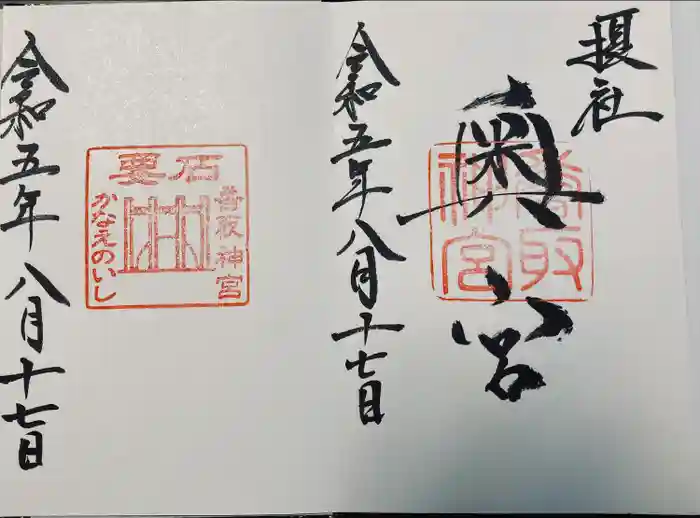 摂社
奥宮
香取
神宮
令和五年八月十七日
要石
香取神宮
かなえのいし
令和五年八月十七日